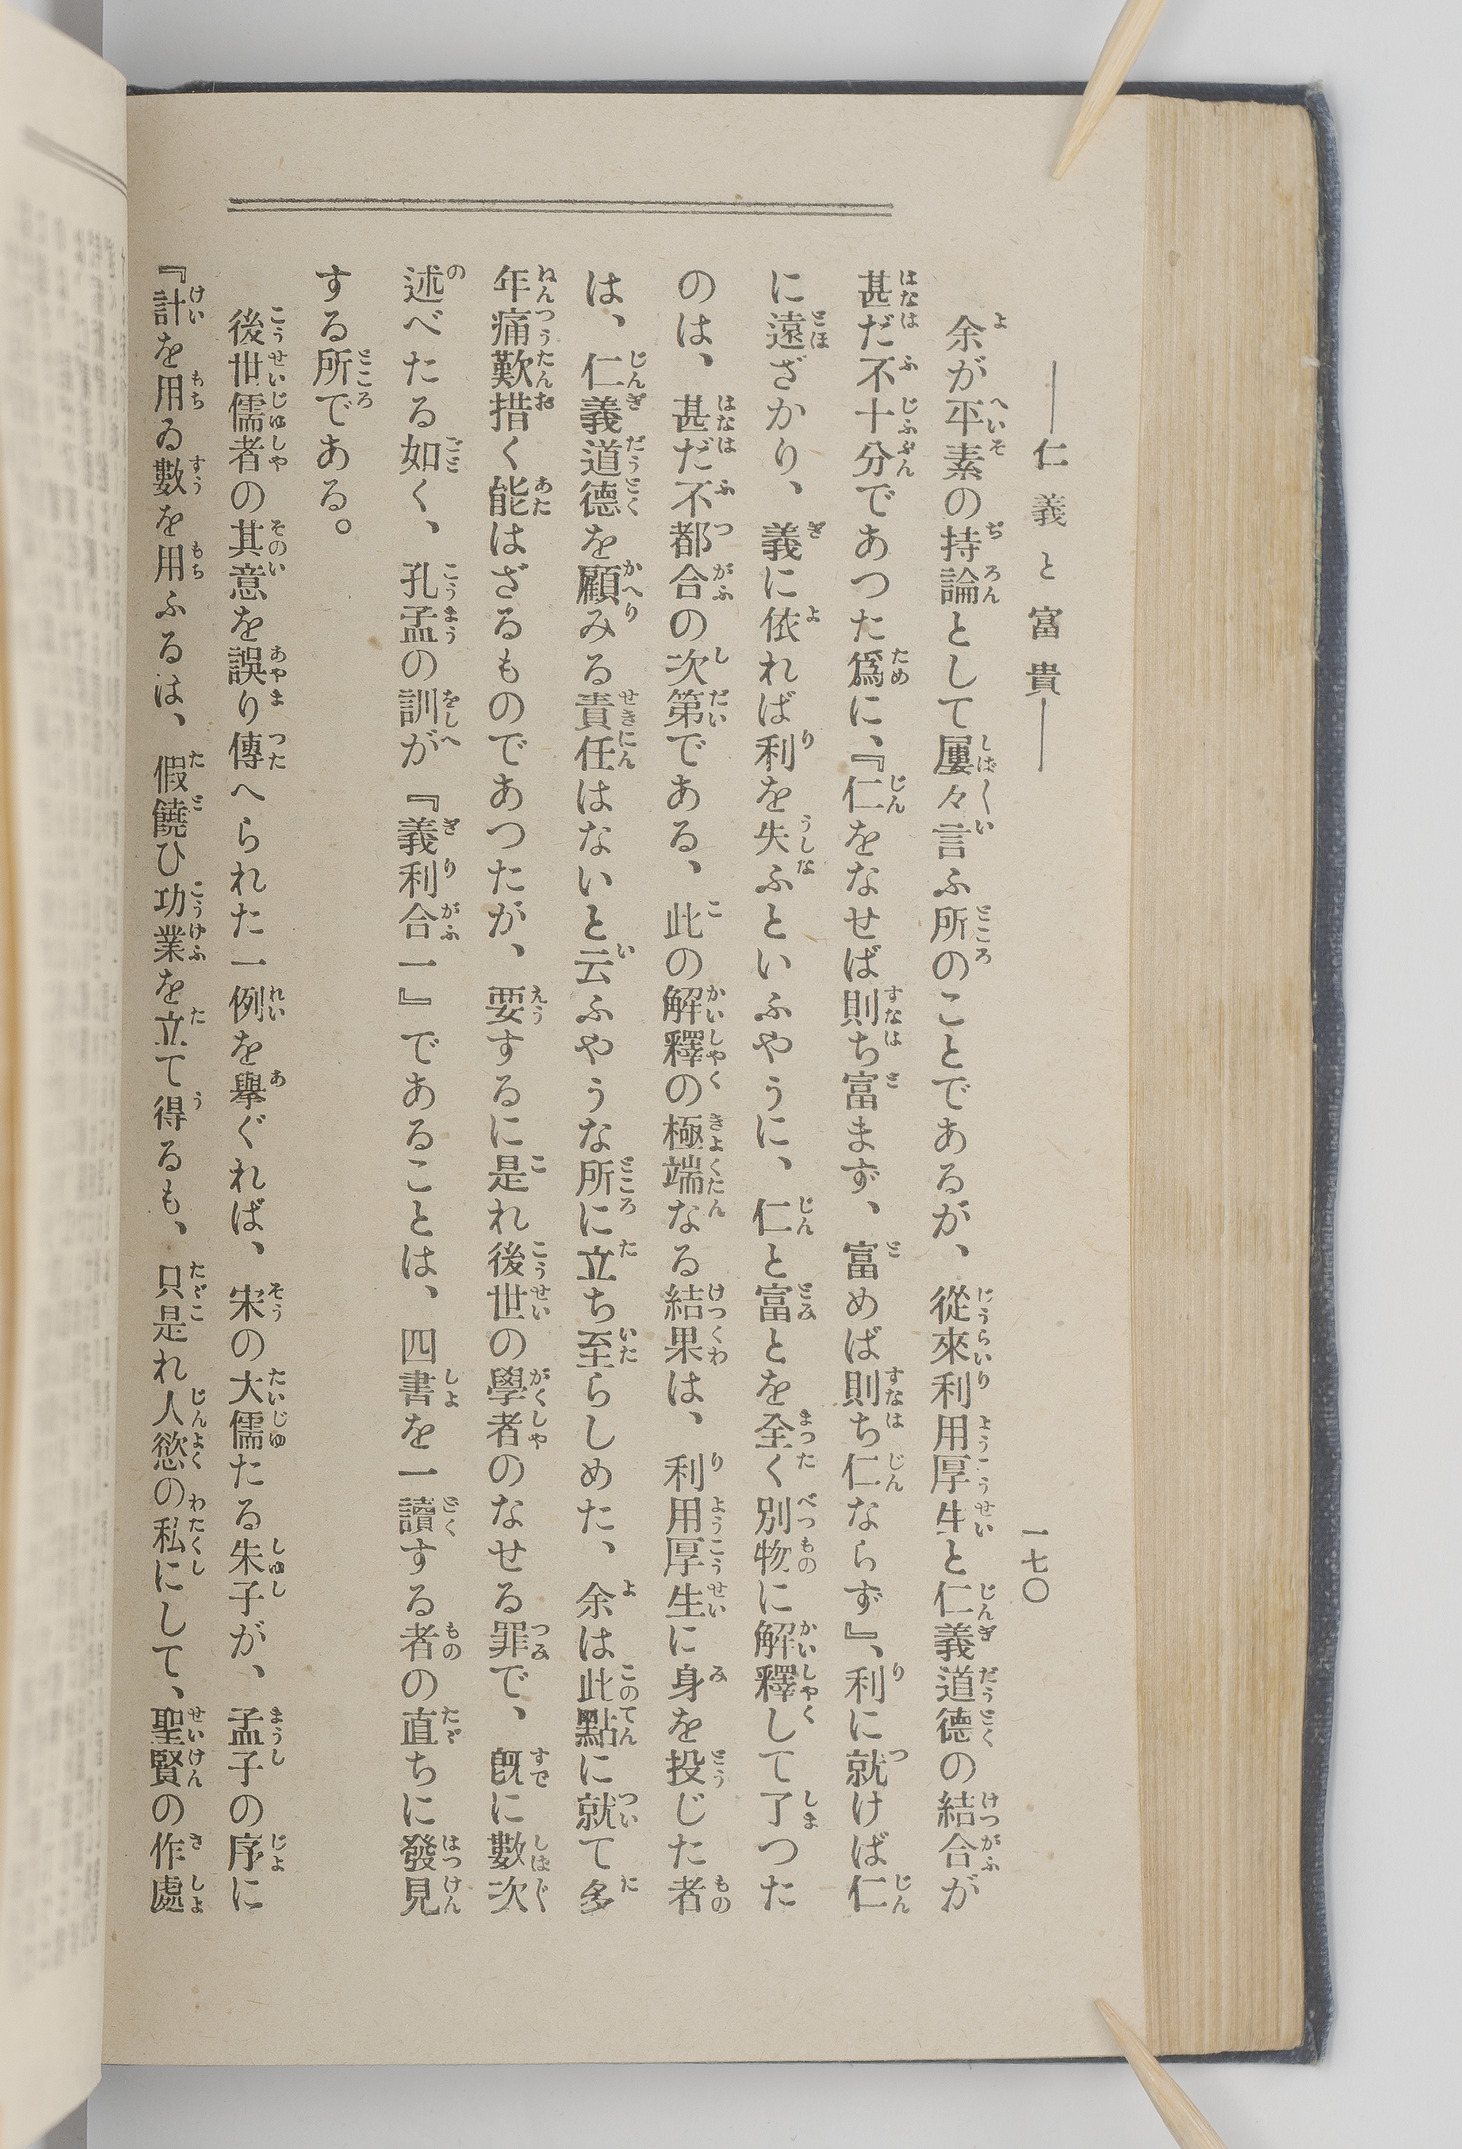 ―仁義と富貴―
一七〇
余が平素の持論として屢々言ふ所のことであるが、從來利用厚生と仁義道德の結合が
甚だ不十分であつた爲に、『仁をなせば則ち富まず、富めば則ち仁ならず』、利に就けば仁
に遠ざかり、義に依れば利を失ふといふやうに、仁と富とを全く別物に解釋して了つた
のは、甚だ不都合の次第である、此の解釋の極端なる結果は、利用厚生に身を投じた者
は、仁義道德を顧みる責任はないと云ふやうな所に立ち至らしめた、余は此點に就て多
年痛歎措く能はざるものであつたが、要するに是れ後世の學者のなせる罪で、旣に數次
述べたる如く、孔孟の訓が『義利合一』であることは、四書を一讀する者の直ちに發見
する所である。
後世儒者の其意を誤り傳へられた一例を擧ぐれば、宋の大儒たる朱子が、孟子の序に
『計を用ゐ數を用ふるは、假饒ひ功業を立て得るも、只是れ人慾の私にして、聖賢の作處